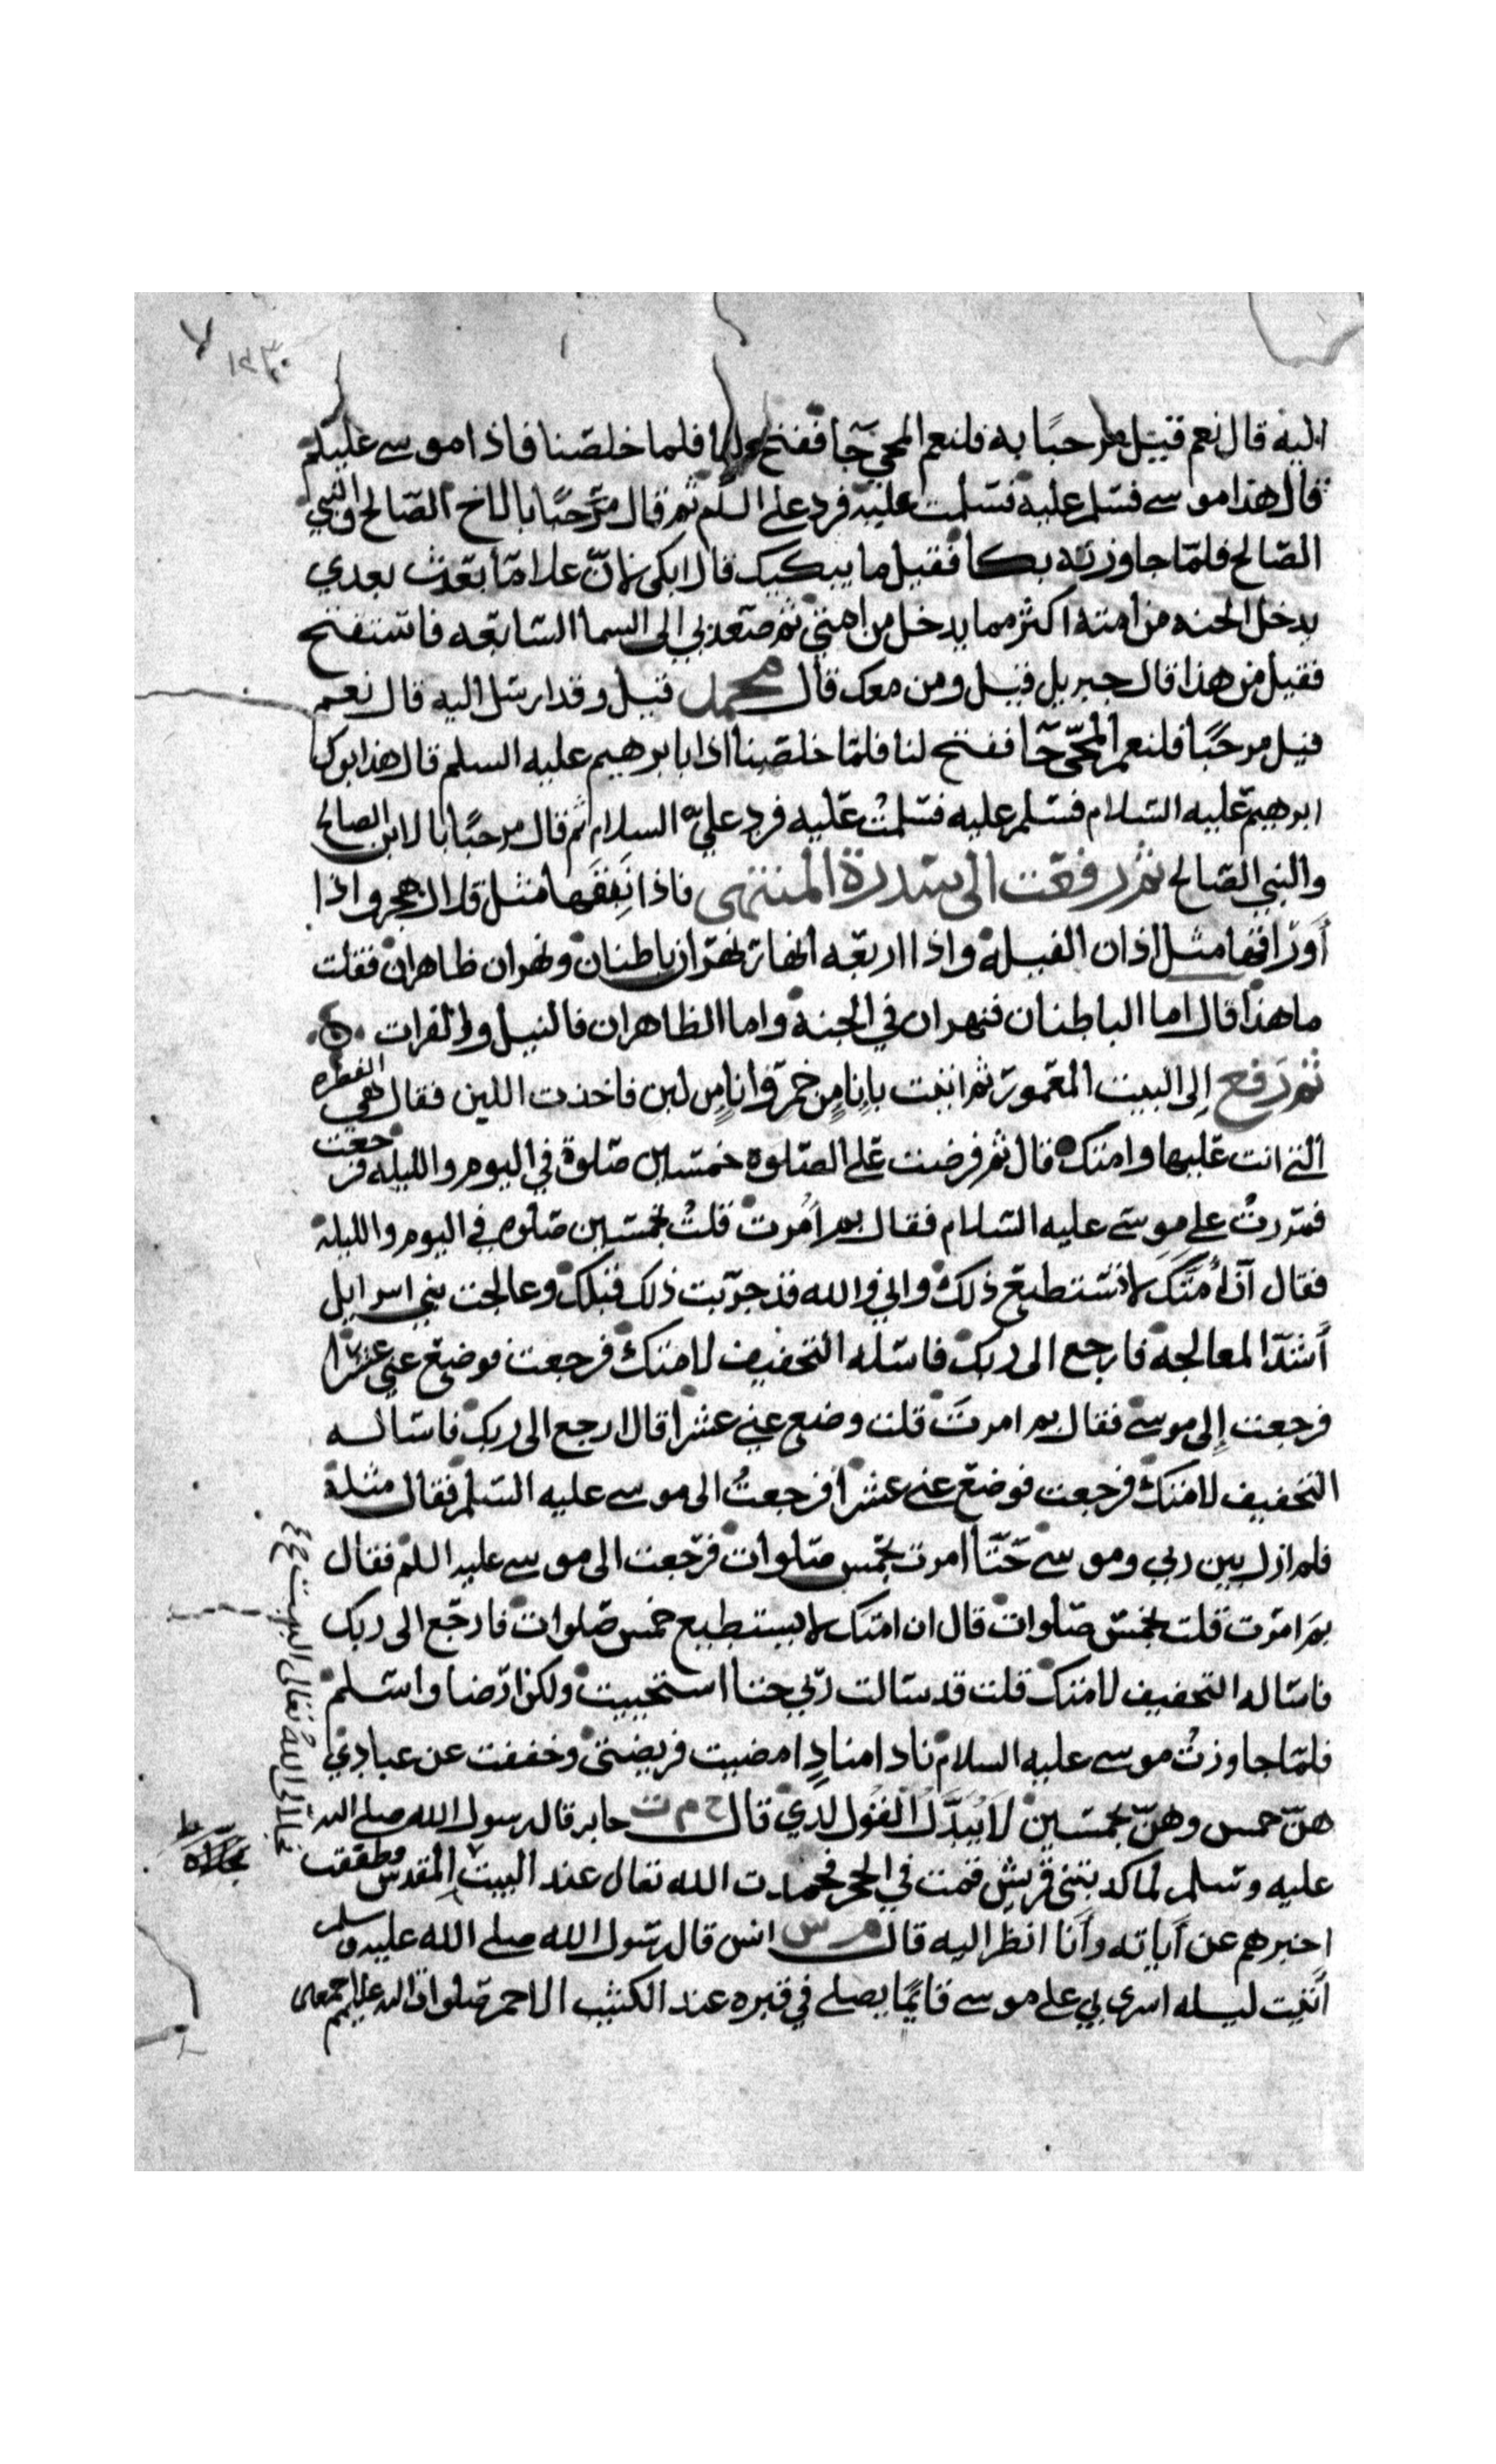 اليه قال نعم قيل مرحبًا به فلنعم المجي جآ ففتح لنا فلما خلصنا فاذا موسى عليلم
قال هذا موسى فسلم عليه فسلمت عليه فرد علي السلم ثم قال مرحبًا بالاخ الصالح والنبي
الصالح فلما جاوزته بكا فقيل ما يبكيك قال ابكى لانّ غلامًا بعث بعدي
يدخل الجنه من امته اكثر مما يدخل من امتي ثم صعد بي الى السما السابعه فاستفتح
فقيل من هذا قال جبريل قيل ومن معك قال محمد قيل وقد ارسل اليه قال نعم
قيل مرحبًا فلنعم المجيّ جآ ففتح لنا فلمّا خلصنا اذا بابرهيم عليه السلم قال هذا ابوك
ابرهيم عليه السلام فسلم عليه فسلمتُ عليه فرد عليّ السلام ثم قال مرحبًا بالابن الصالح
والنبي الصالح ثم رفعت الى سدرة المنتهى فاذا نَبِقَها مثل قلال هجر واذا
أَوراقها مثل اذان الفيلة واذا اربعه انهار نهران باطنان ونهران ظاهران فقلت
ما هذا قال اما الباطنان فنهران في الجنة واما الظاهران فالنيل والفرات
ثم رفع اِلى البيت المعمور ثم اتيت بإناٍ من خمر واناٍ من لبن فاخذت اللبن فقال هي الفطره
التي انت عليها وامتك قال ثم فرضت علي الصلوة خمسين صلوة في اليوم والليله فرجعت
فمررت على موسى عليه السلام فقال بم اُمرت قلتُ بخمسين صلوه في اليوم والليلة
فقال اَن اُمتَك لا تستطيع ذلك واني والله قد جرّبت ذلك قبلك وعالجت بني اسرايل
أَشدّ المعالجه فارجع الى ربك فاسله التخفيف لامتك فرجعت فوضع عني عشرًا
فرجعت اِلى موسى فقال بم امرتَ قلت وضع عني عشرا قال ارجع الى ربك فاساله
التخفيف لامتك فرجعت فوضع عني عشرًا فرجعتُ الى موسى عليه السلم فقال مثله
فلم ازل بين ربي وموسى حتّا امرت بخمس صلوات فرجعت الى موسى عليه السلم فقال
بم امرت قلت بخمس صلوات قال ان امتك لا يستطيع خمس صلوات فارجع الى ربك
فاساله التخفيف لامتك قلت قد سالت ربّي حتا استحييت ولكن ارضا واسلم
فلمّا جاوزتُ موسى عليه السلام نادا منادٍ امضيت فريضتي وخففت عن عبادي
هنّ خمس وهنّ بخمسين لَا يُبَدَّلُ القَول لدي قال خ م ت جابر قال رسول الله صلى الله
عليه وسلم لما كذبتني قريش قمت في الحجر فحمدت الله تعالى عند البيت المقدس فطفقت
اخبرهم عن آياته وأنا انظر اليه قال م س انس قال رسول الله صلى الله عليه وسلم
أتيت ليله اسرى بي على موسى قايمًا يصلى في قبره عند الكثيب الاحمر صلوات الله عليهم اجمعين